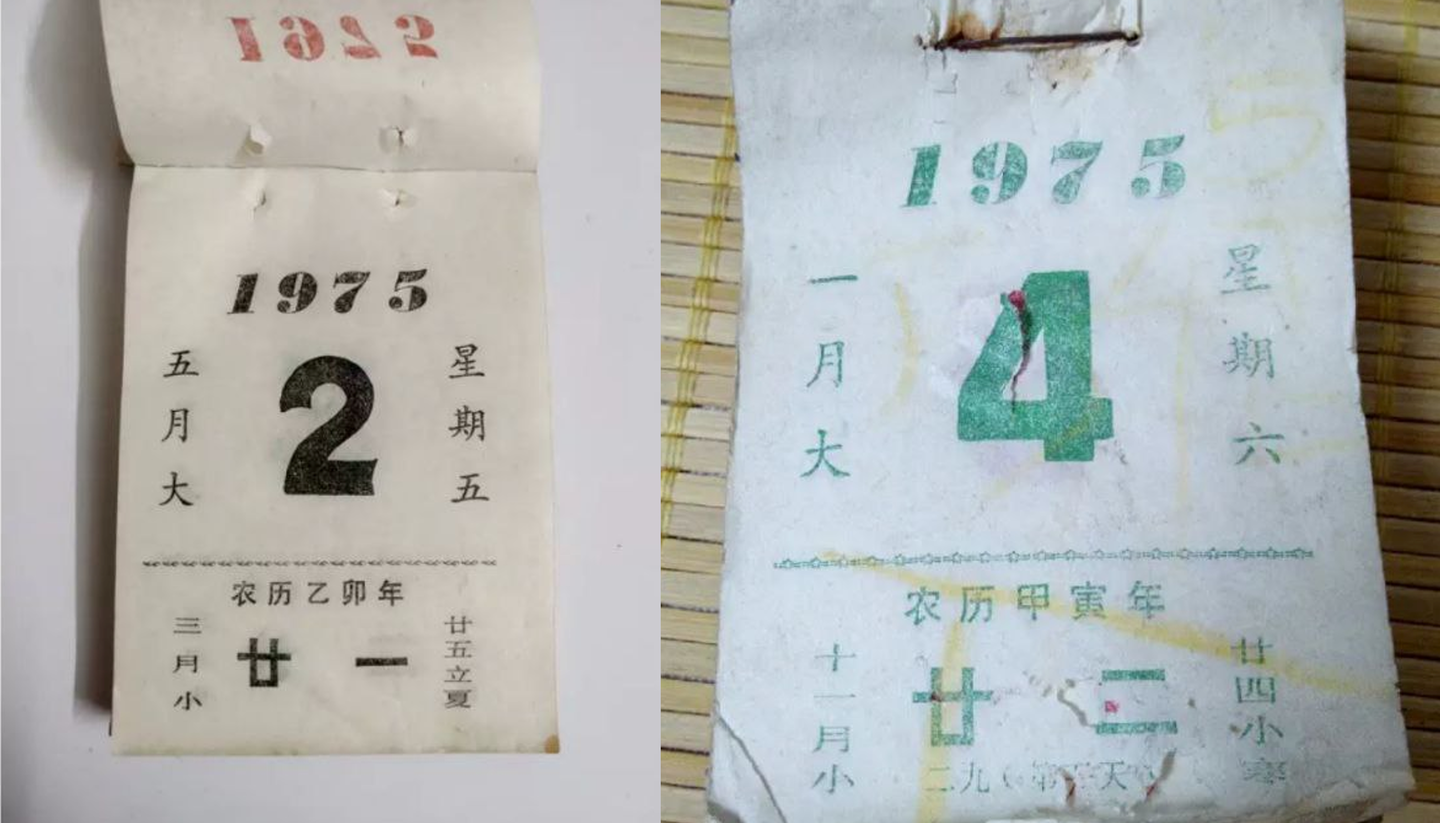 1975
五月大
2
星期五
农历乙卯年
三月小
廿一
廿五立夏
1975
一月大
4
星期六
农历甲寅年
十一月小
廿二
廿四小寒
二九(第 天)